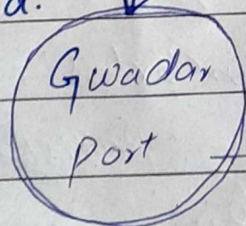 a.
Gwadar
port